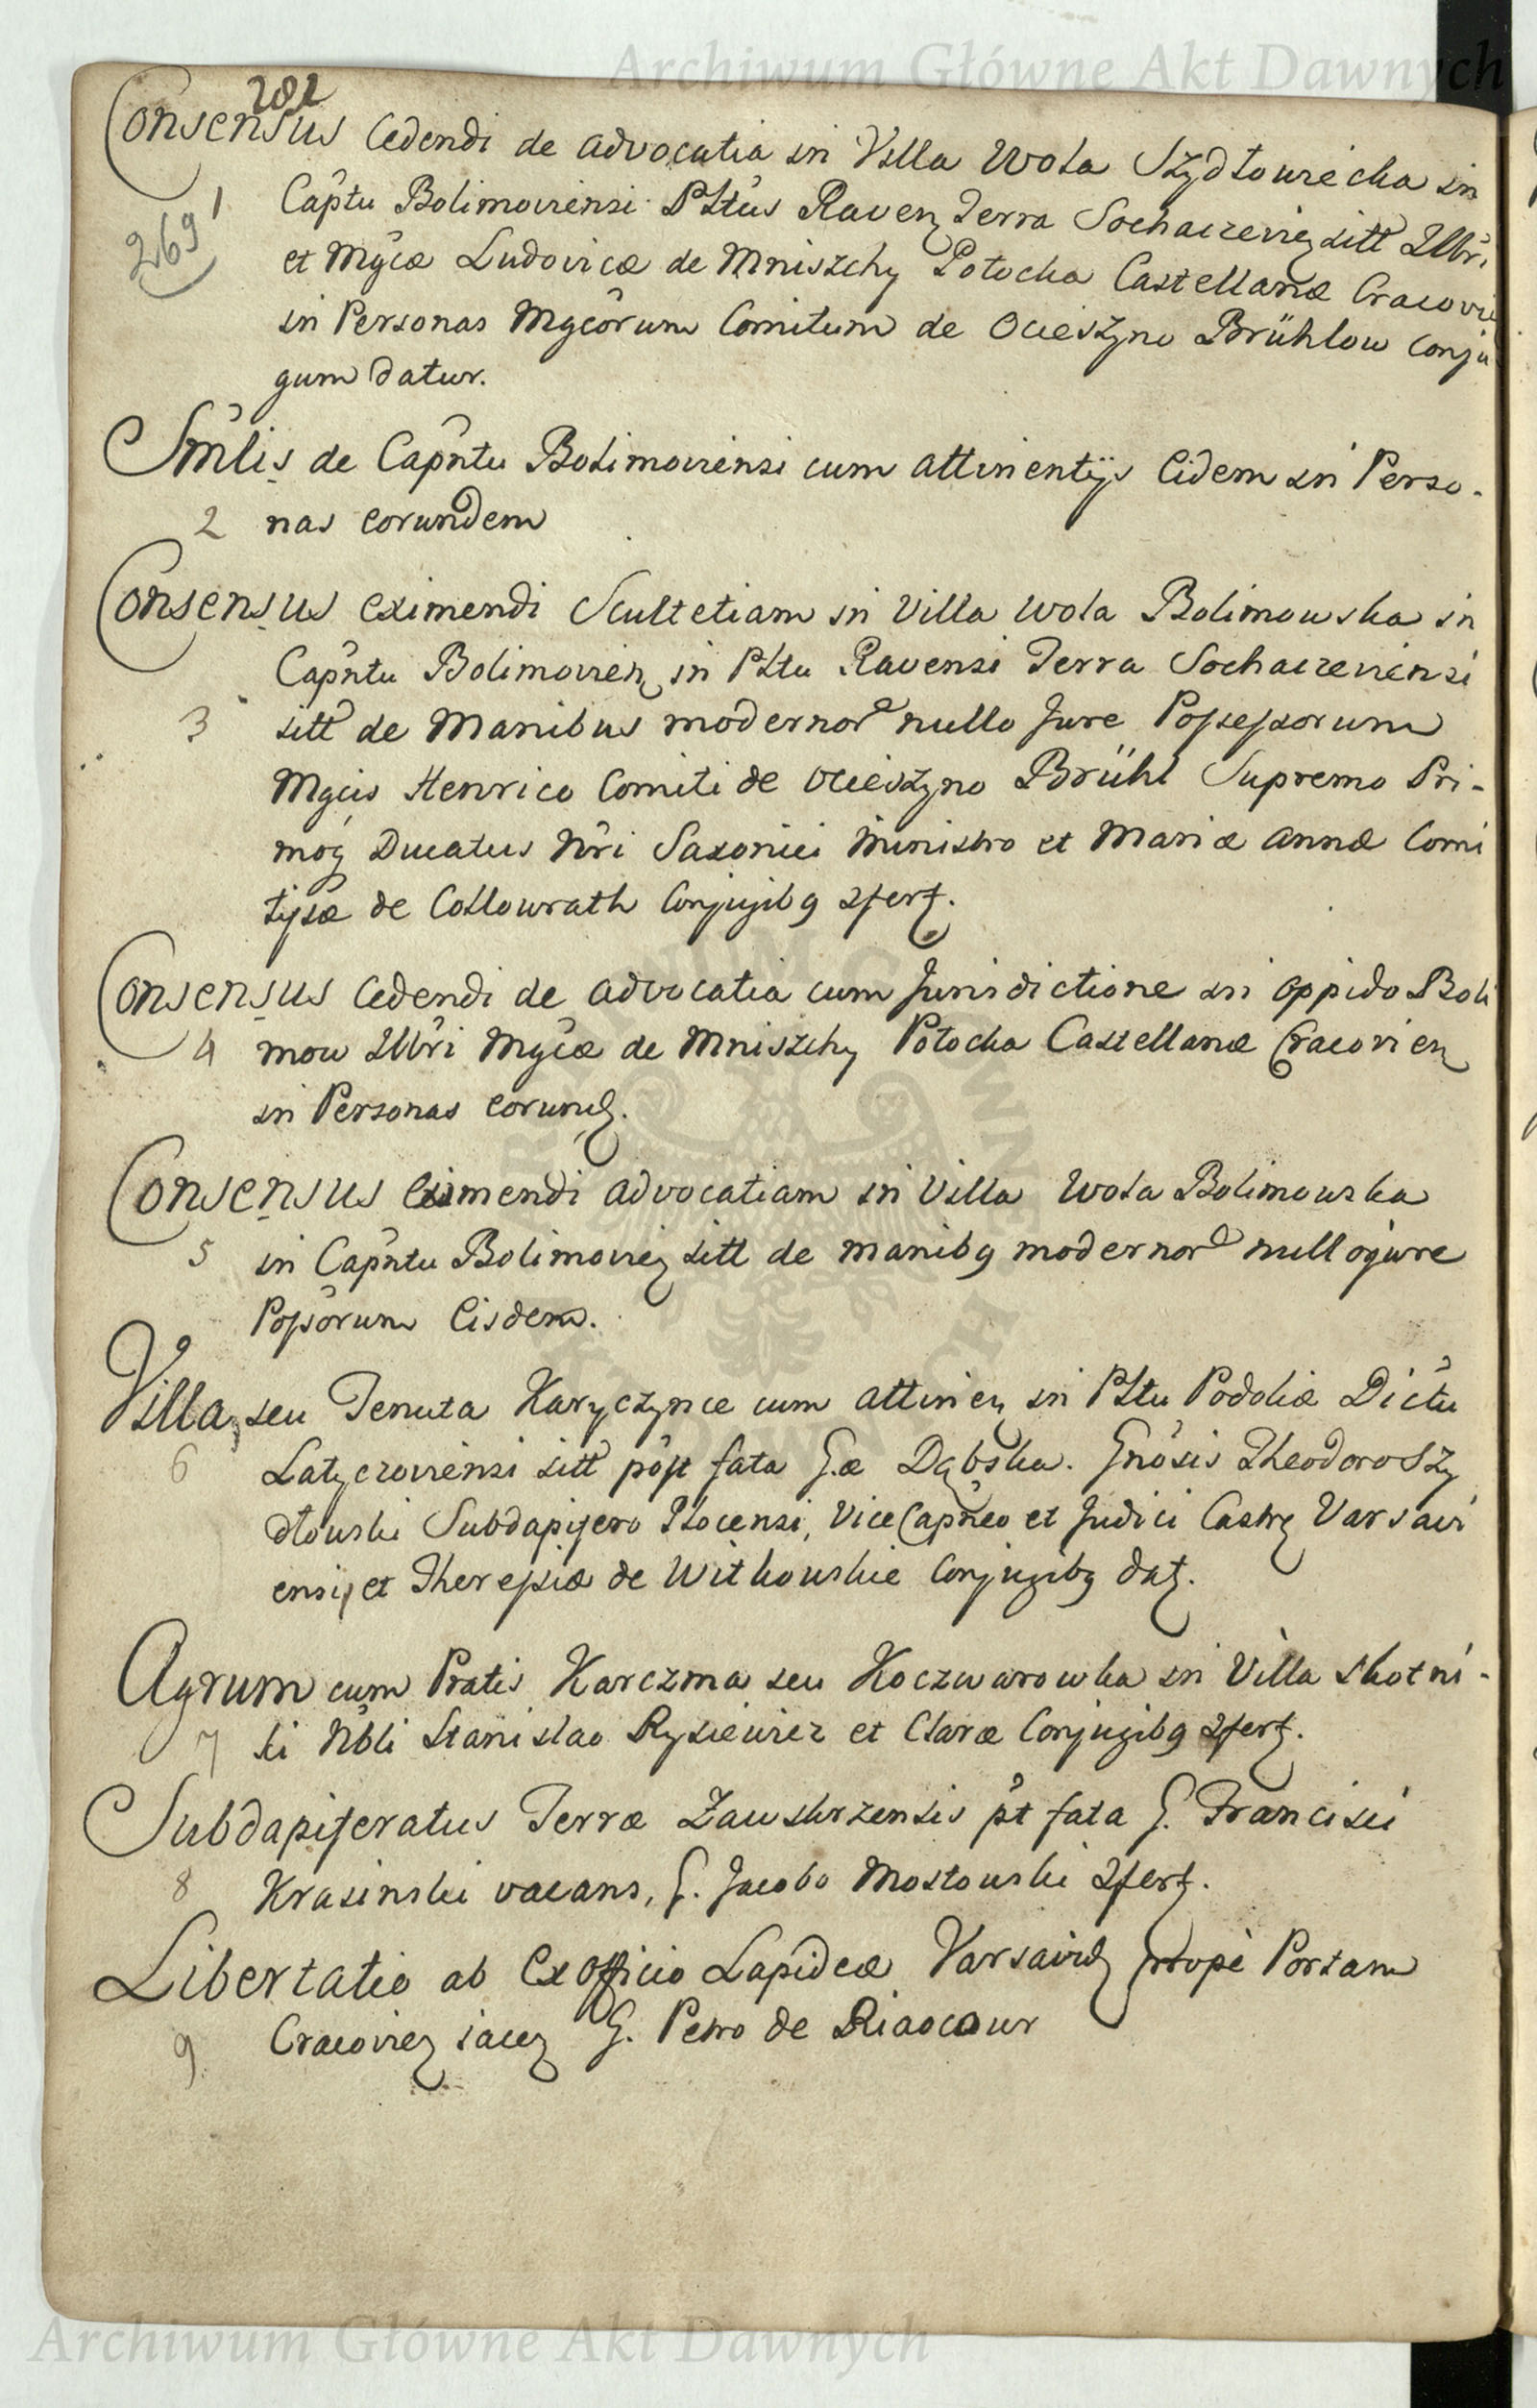 Archiwum Główne Akt Dawnych
Consensus Cedendi de advocatia in Villa Wola Szydłowiecka in
1 Captu Bolimoviensi Pltus Raven Terra Sochacrevien sitt Illbri
269
et Mgcæ Ludovicæ de Mniszchy Potocka Castellanæ Cracovie
in Personas Mgcorum Comitum de Ocieszyno Brühlow Conju
gum datur.
Smlis de Capntu Bolimoviensi cum attinentijs Eidem in Perso-
2 nas Eorundem
Consensus Eximendi Scultetiam in Villa Wola Bolimowska in
Capntu Bolimovien in Pltu Ravensi Terra Sochacreviensi
3 sitt de Manibus modernor nullo Jure Possessorum
Mgcis Henrico Comiti de Ocieszyno Brühl Supremo Pri-
moq Ducatus Nri Saxonici Ministro et Mariæ Annæ Comi
tissæ de Collowrath Conjugibq 2fert.
Consensus Cedendi de advocatia cum Jurisdictione in Oppido Boli
4 mow Illbri Mgcæ de Mniszchy Potocka Castellanæ Cracovien
in Personas Eorund.
Consensus Eximendi advocatiam in Villa Wola Bolimowska
5 in Capntu Bolimovien sitt de manibq modernor nulloqjure
Possorum Eisdem.
Villa, seu Tenuta Karyczynce cum attinen in Pltu Podoliæ Dictu
6 Latyczoviensi sitt post fata G.æ Dąbska. Gnosis Theodoro Szy
dłowski Subdapifero Plocensi, ViceCapneo et Judici Castr Varsavi
ensi, et Theressiæ de Witkowskie Conjugibq dat.
Agrum cum Pratis Karczma seu Koczwarowka in Villa Skotni-
7 ki Nbli Stanislao Rysiewicz et Claræ Conjugibq 2fert.
Subdapiferatus Terræ Zawskrzensis pt fata G. Francisci
8 Krasinski vacans, G. Jacobo Mostowski 2fert.
Libertatio ab Ex Officio Lapideæ Varsaviæ propè Portam
9 Cracovien jacen G. Petro de Riaocour
Archiwum Główne Akt Dawnych